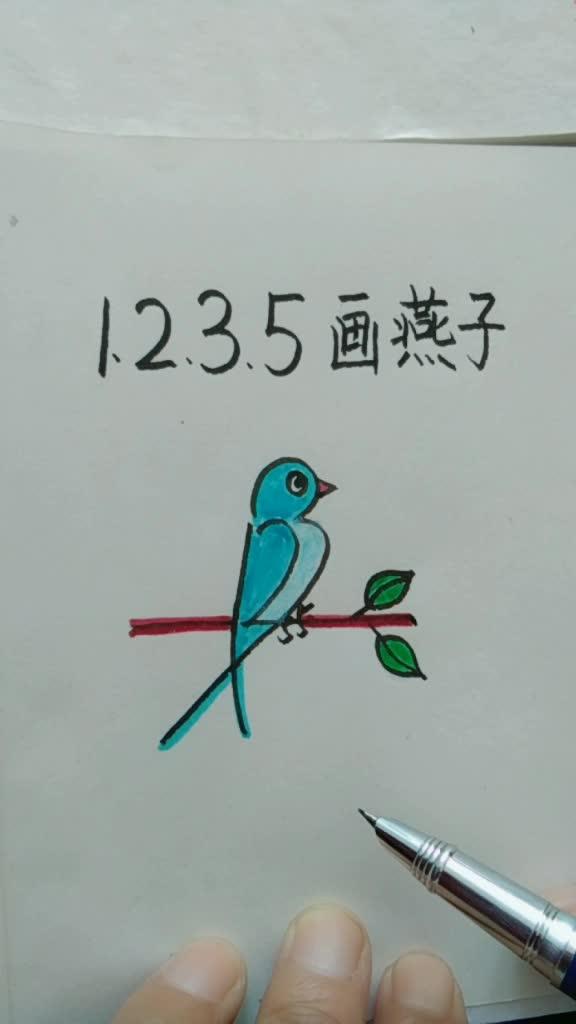 1.2.3.5画燕子